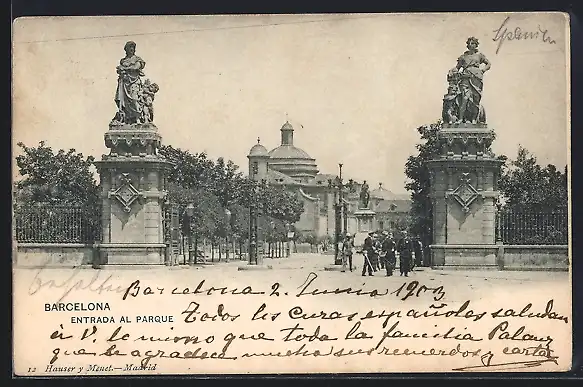 Spanien
BARCELONA Barcelona 2. Junio 1903
ENTRADA AL PARQUE Todos los curas españoles saludan
á V. lo mismo que toda la familia Palanz
que le agradece mucho sus recuerdos y carta
12 Hauser y Menet.—Madrid